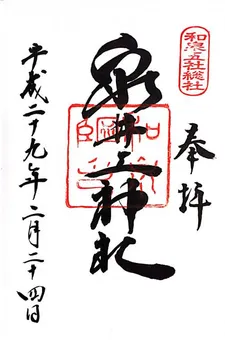 和泉五社総社
奉拝
泉井上神社
平成二十九年二月二十四日